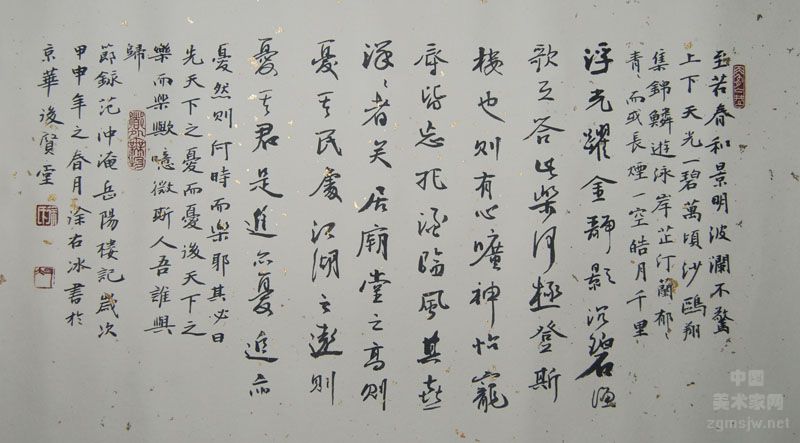 至若春和景明波瀾不驚
上下天光一碧萬頃沙鷗翔
集錦鱗遊泳岸芷汀蘭郁〻
青〻而或長煙一空皓月千里
浮光耀金靜影沉璧漁
歌互答此樂何極登斯
楼也則有心曠神怡寵
辱皆忘把酒臨風其喜
洋〻者矣居廟堂之高則
憂其民處江湖之遠則
憂其君是進亦憂退亦
憂然則何時而樂耶其必曰
先天下之憂而憂後天下之
樂而樂歟噫微斯人吾誰與
歸
節録范仲淹岳陽楼記歲次
甲申年之春月涂右冰書於
京華後賢堂
中国
美术家网
zgmsjw.net